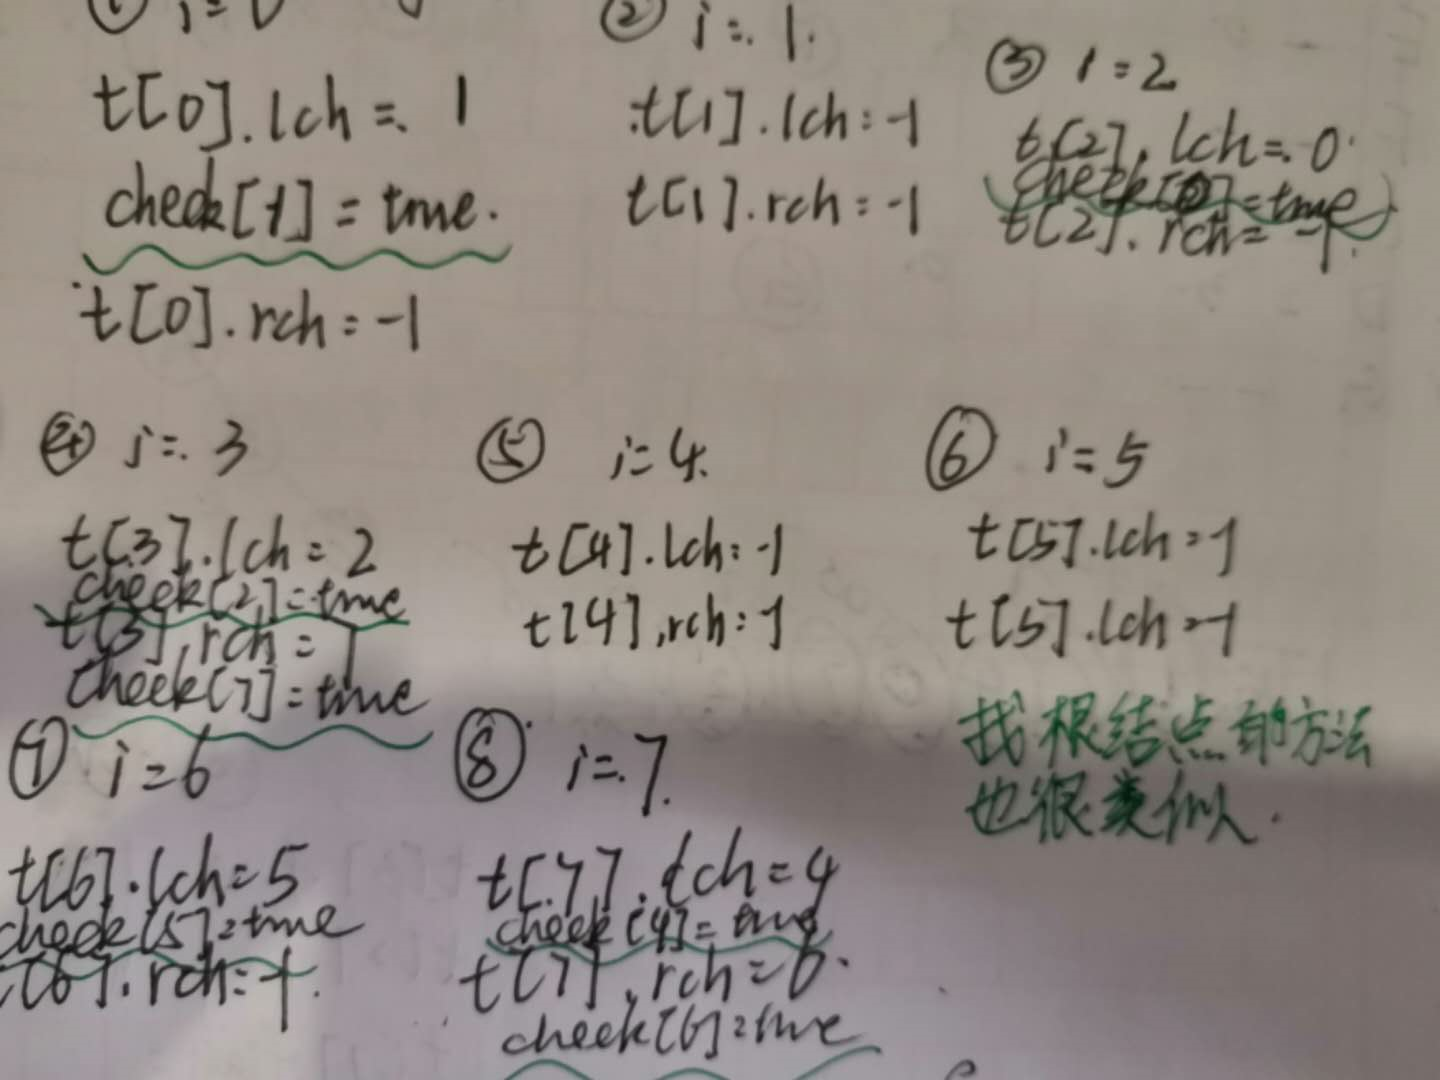 ① i=0
t[0].lch=. 1
check[1]=true.
t[0].rch=-1
② i=.1.
t[1].lch=-1
t[1].rch=-1
③ i=2
t[2].lch=.0.
check[0]=true
t[2].rch=-1.
④ i=.3
t[3].lch=2
check[2]=true
t[3].rch=7
check[7]=true
⑤ i=4.
t[4].lch=-1
t[4],rch=-1
⑥ i=5
t[5].lch=-1
t[5].lch=-1
找根结点的方法
也很类似.
⑦ i=6
t[6].lch=5
check[5]=true
t[6].rch=-1.
⑧ i=.7.
t[7].lch=4
check[4]=true
t[7].rch=6.
check[6]=true